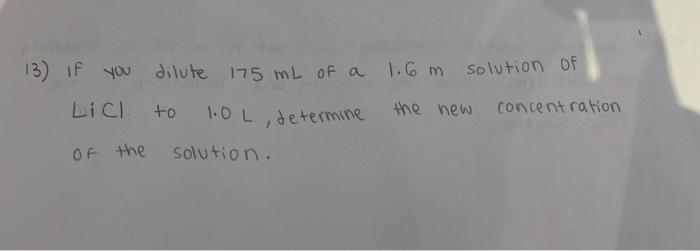 13) if you dilute 175 mL of a 1.6 m solution of
LiCl. to 1.0 L, determine the new concentration
of the solution.